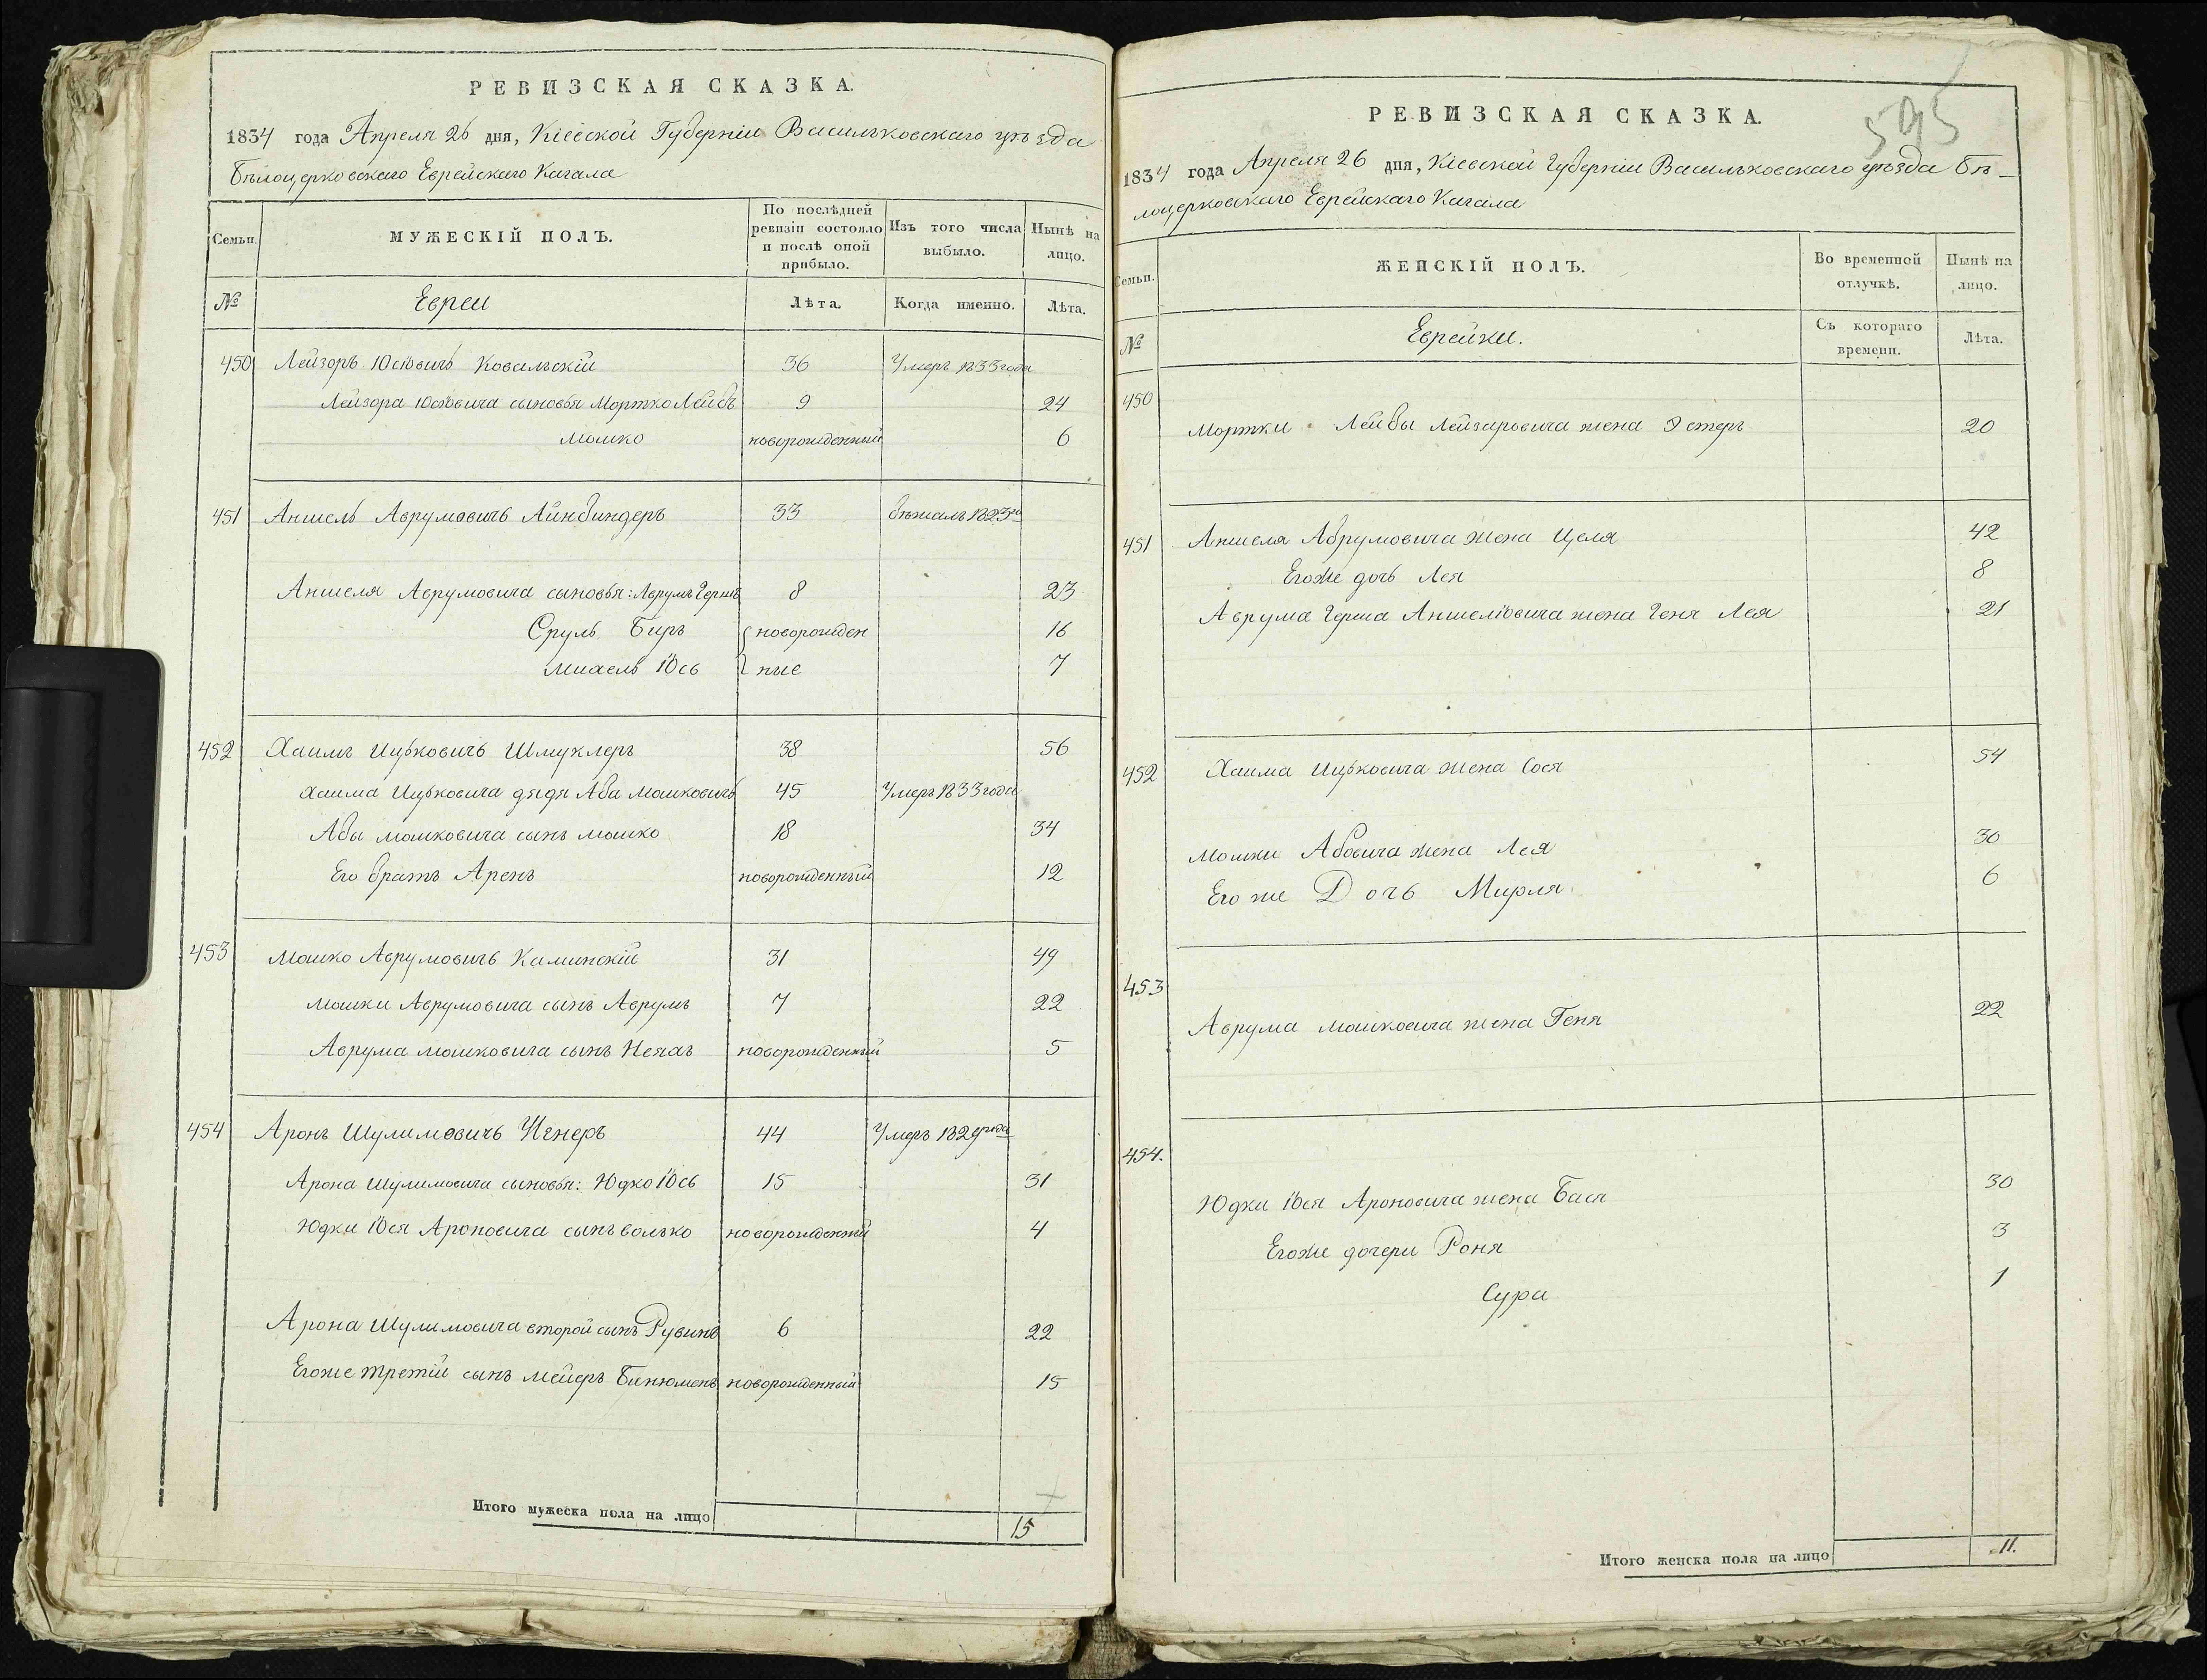 РЕВИЗСКАЯ СКАЗКА.
1834 года Апреля 26 дня, Кіевской Губерніи Васильковскаго уѣзда
Бѣлоцерковскаго Еврейскаго Кагала
Семьи.
МУЖЕСКІЙ ПОЛЪ.
По послѣдней ревизіи состояло и послѣ оной прибыло.
Изъ того числа выбыло.
Нынѣ на лицо.
№ Евреи Лѣта. Когда именно. Лѣта.
450 Лейзоръ Юсіовичъ Ковальскій 36 Умеръ 1833 года
Лейзора Юсіовича сыновья Мортко Лейбъ 9 24
Мошко новорожденный 6
451 Аншель Аврумовичъ Айнбиндеръ 33 бѣжалъ 1823го
Аншеля Аврумовича сыновья: Аврумъ Гершъ 8 23
Сруль Биръ новорожден 16
Іось ные 7
452 Хаимъ Ицьковичъ Шмуклеръ 38 56
Хаима Ицьковича дядя Аба Мошковичъ 45 Умеръ 1833 года
Абы Мошковича сынъ Мошко 18 34
Его братъ Аренъ новорожденный 12
453 Мошко Аврумовичъ Каминскій 31 49
Мошки Аврумовича сынъ Аврумъ 7 22
Аврума Мошковича сынъ новорожденный 5
454 Аронъ Шулимовичъ 44 Умеръ 1829 года
Арона Шулимовича сыновья: Юдко Іось 15 31
Юдки Іося Ароновича сынъ Волько новорожденный 4
Арона Шулимовича второй сынъ Рувинъ 6 22
Егоже третій сынъ Мейеръ Бинюменъ новорожденный 15
Итого мужеска пола на лицо 15
595
РЕВИЗСКАЯ СКАЗКА.
1834 года Апреля 26 дня, Кіевской Губерніи Васильковскаго уѣзда Бѣ-
лоцерковскаго Еврейскаго Кагала
Семьи.
ЖЕНСКІЙ ПОЛЪ.
Во временной отлучкѣ.
Нынѣ на лицо.
№ Еврейки. Съ котораго времени. Лѣта.
450
Мортки Лейбы Лейзаровича жена Эстеръ 20
451 Аншеля Абрумовича жена Целя 42
Егоже дочь Лея 8
Аврума Герша Аншеліовича жена Геня Лея 21
452 Хаима Ицьковича жена Сося 54
Мошки Абовича жена Лея 30
Его же Дочь Мирля 6
453
Аврума Мошковича жена Геня 22
454.
Юдки Іося Ароновича жена Бася 30
Егоже дочери Роня 3
Сура 1
Итого женска пола на лицо 11.